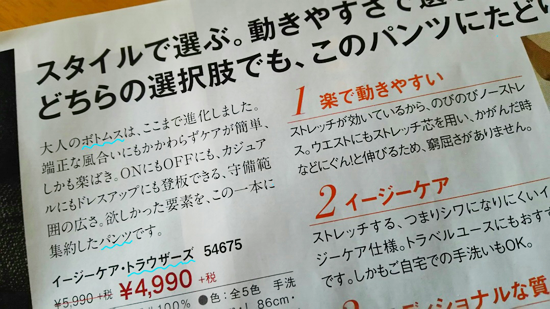 スタイルで選ぶ。動きやすさで選
どちらの選択肢でも、このパンツにたどい
大人のボトムスは、ここまで進化しました。
端正な風合いにもかかわらずケアが簡単、
しかも楽ばき。ONにもOFFにも、カジュア
ルにもドレスアップにも登板できる、守備範
囲の広さ。欲しかった要素を、この一本に
集約したパンツです。
イージーケア・トラウザーズ 54675
¥5,990+税 ¥4,990 +税
100% ●色:全5色 手洗
86cm・
1 楽で動きやすい
ストレッチが効いているから、のびのびノーストレ
ス。ウエストにもストレッチ芯を用い、かがんだ時
などにぐん!と伸びるため、窮屈さがありません。
2 イージーケア
ストレッチする、つまりシワになりにくいイ
ージーケア仕様。トラベルユースにもおすす
です。しかもご自宅での手洗いもOK。
ディショナルな質